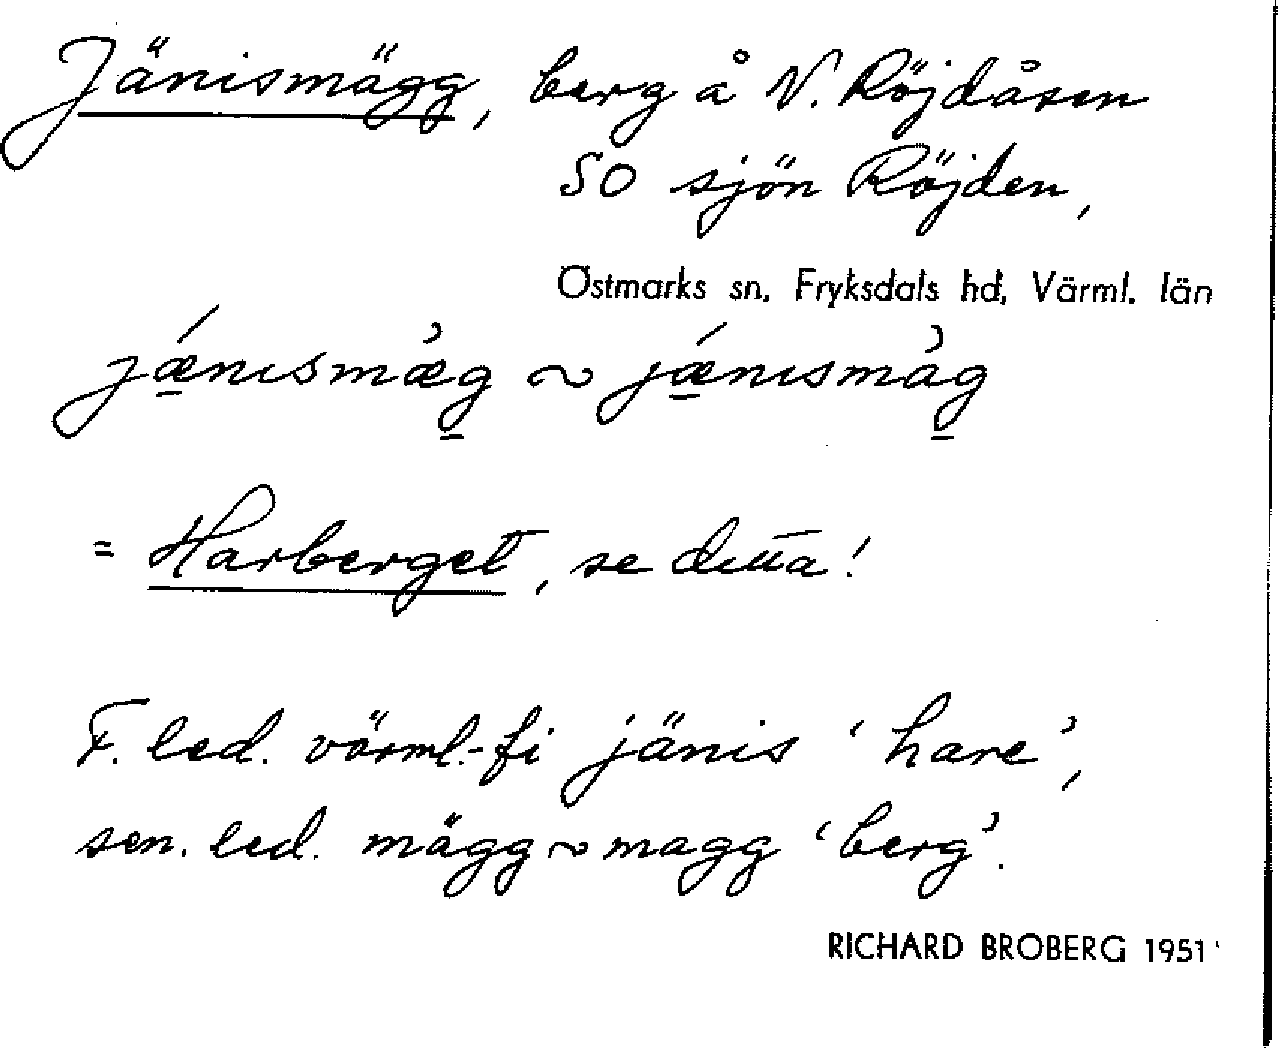 Jänismägg, berg å N. Röjdåsen
SO sjön Röjden,
Östmarks sn, Fryksdals hd, Värml. län
jǽnısmæ̀g ~ jǽnısmàg
= Harberget, se detta!
F. led. värml.-fi jänis 'hare',
sen. led. mägg ~ magg 'berg'.
RICHARD BROBERG 1951